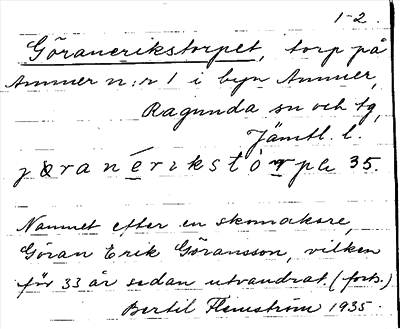 1-2.
Göranerikstorpet, torp på
Ammer n:r 1 i byn Ammer,
Ragunda sn och tg,
Jämtl. l.
jöranérikstòrpe 35.
Namnet efter en skomakare,
Göran Erik Göransson, vilken
för 33 år sedan utvandrat. (forts.)
Bertil Flemström 1935.